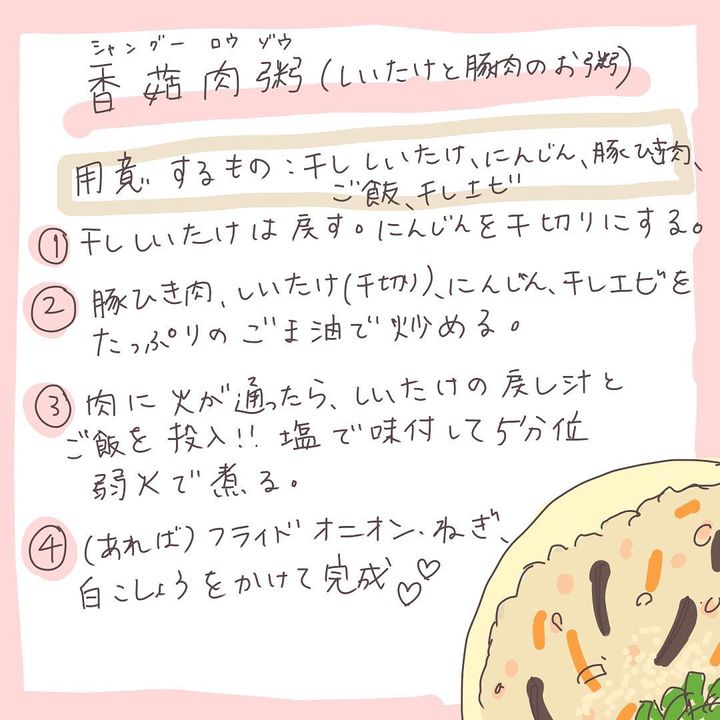 シャングー ロウ ゾウ
香菇肉粥(しいたけと豚肉のお粥)
用意するもの:干ししいたけ、にんじん、豚ひき肉、
ご飯、干しエビ
① 干ししいたけは戻す。にんじんを千切りにする。
② 豚ひき肉、しいたけ(千切り)、にんじん、干しエビを
たっぷりのごま油で炒める。
③ 肉に火が通ったら、しいたけの戻し汁と
ご飯を投入!! 塩で味付して5分位
弱火で煮る。
④ (あれば)フライドオニオン・ねぎ、
白こしょうをかけて完成♡♡